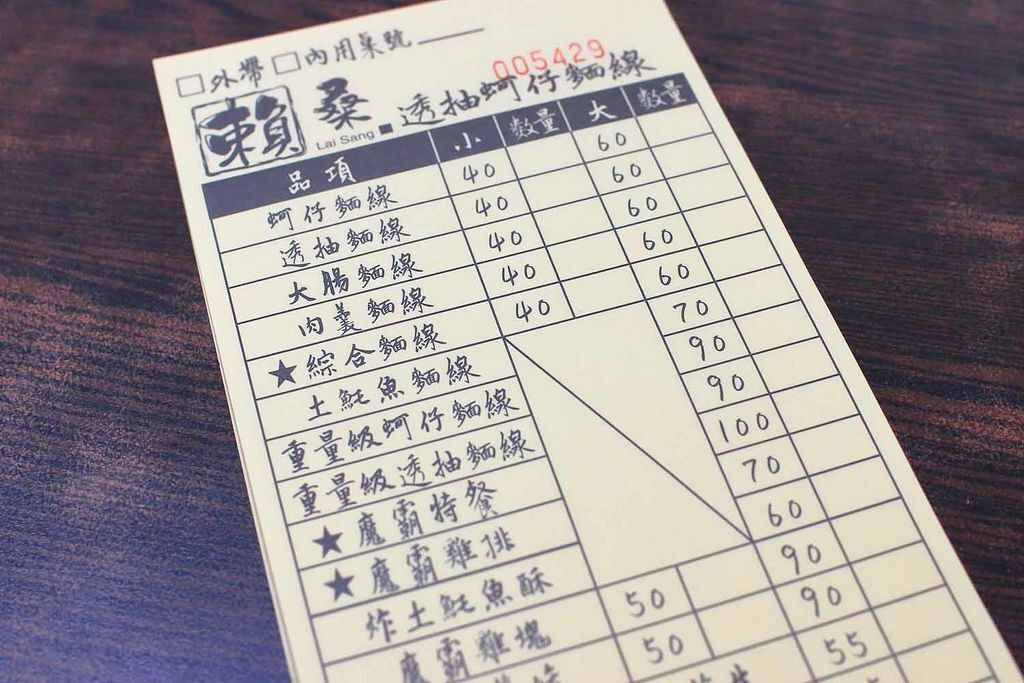 □外帶 □內用桌號
005429
賴桑 Lai Sang ■透抽蚵仔麵線
品項 小 數量 大 數量
蚵仔麵線 40 60
透抽麵線 40 60
大腸麵線 40 60
肉羹麵線 40 60
★綜合麵線 40 60
土魠魚麵線 70
重量級蚵仔麵線 90
重量級透抽麵線 90
★魔霸特餐 100
★魔霸雞排 70
炸土魠魚酥 60
魔霸雞塊 50 90
50 90
55